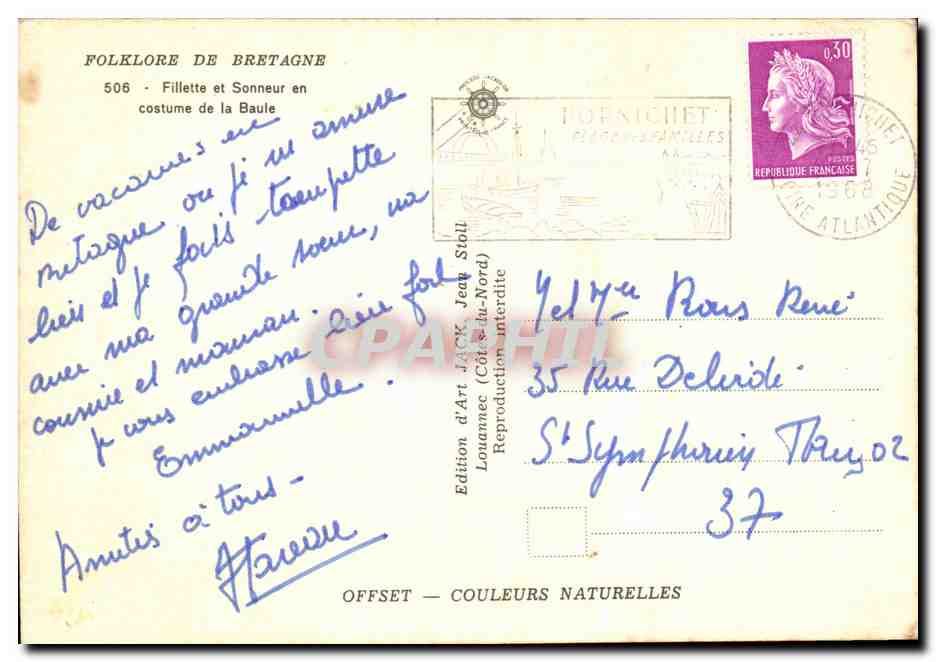 FOLKLORE DE BRETAGNE
506 - Fillette et Sonneur en
costume de la Baule
De vacances en
Bretagne ou je m'amuse
bien et je fais trempette
avec ma grande soeur, ma
cousine et maman.
je vous embrasse bien fort
Emmanuelle.
Amitiés à tous -
PORNICHET
PLAGE DES FAMILLES
0,30
POSTES
REPUBLIQUE FRANÇAISE
PORNICHET
45
7
1968
LOIRE ATLANTIQUE
Edition d'Art JACK, Jean Stoll
Louannec (Côtes-du-Nord)
Reproduction interdite
CPAPHIL
René
35 Rue
St Symphorien Tours 02
37
OFFSET — COULEURS NATURELLES